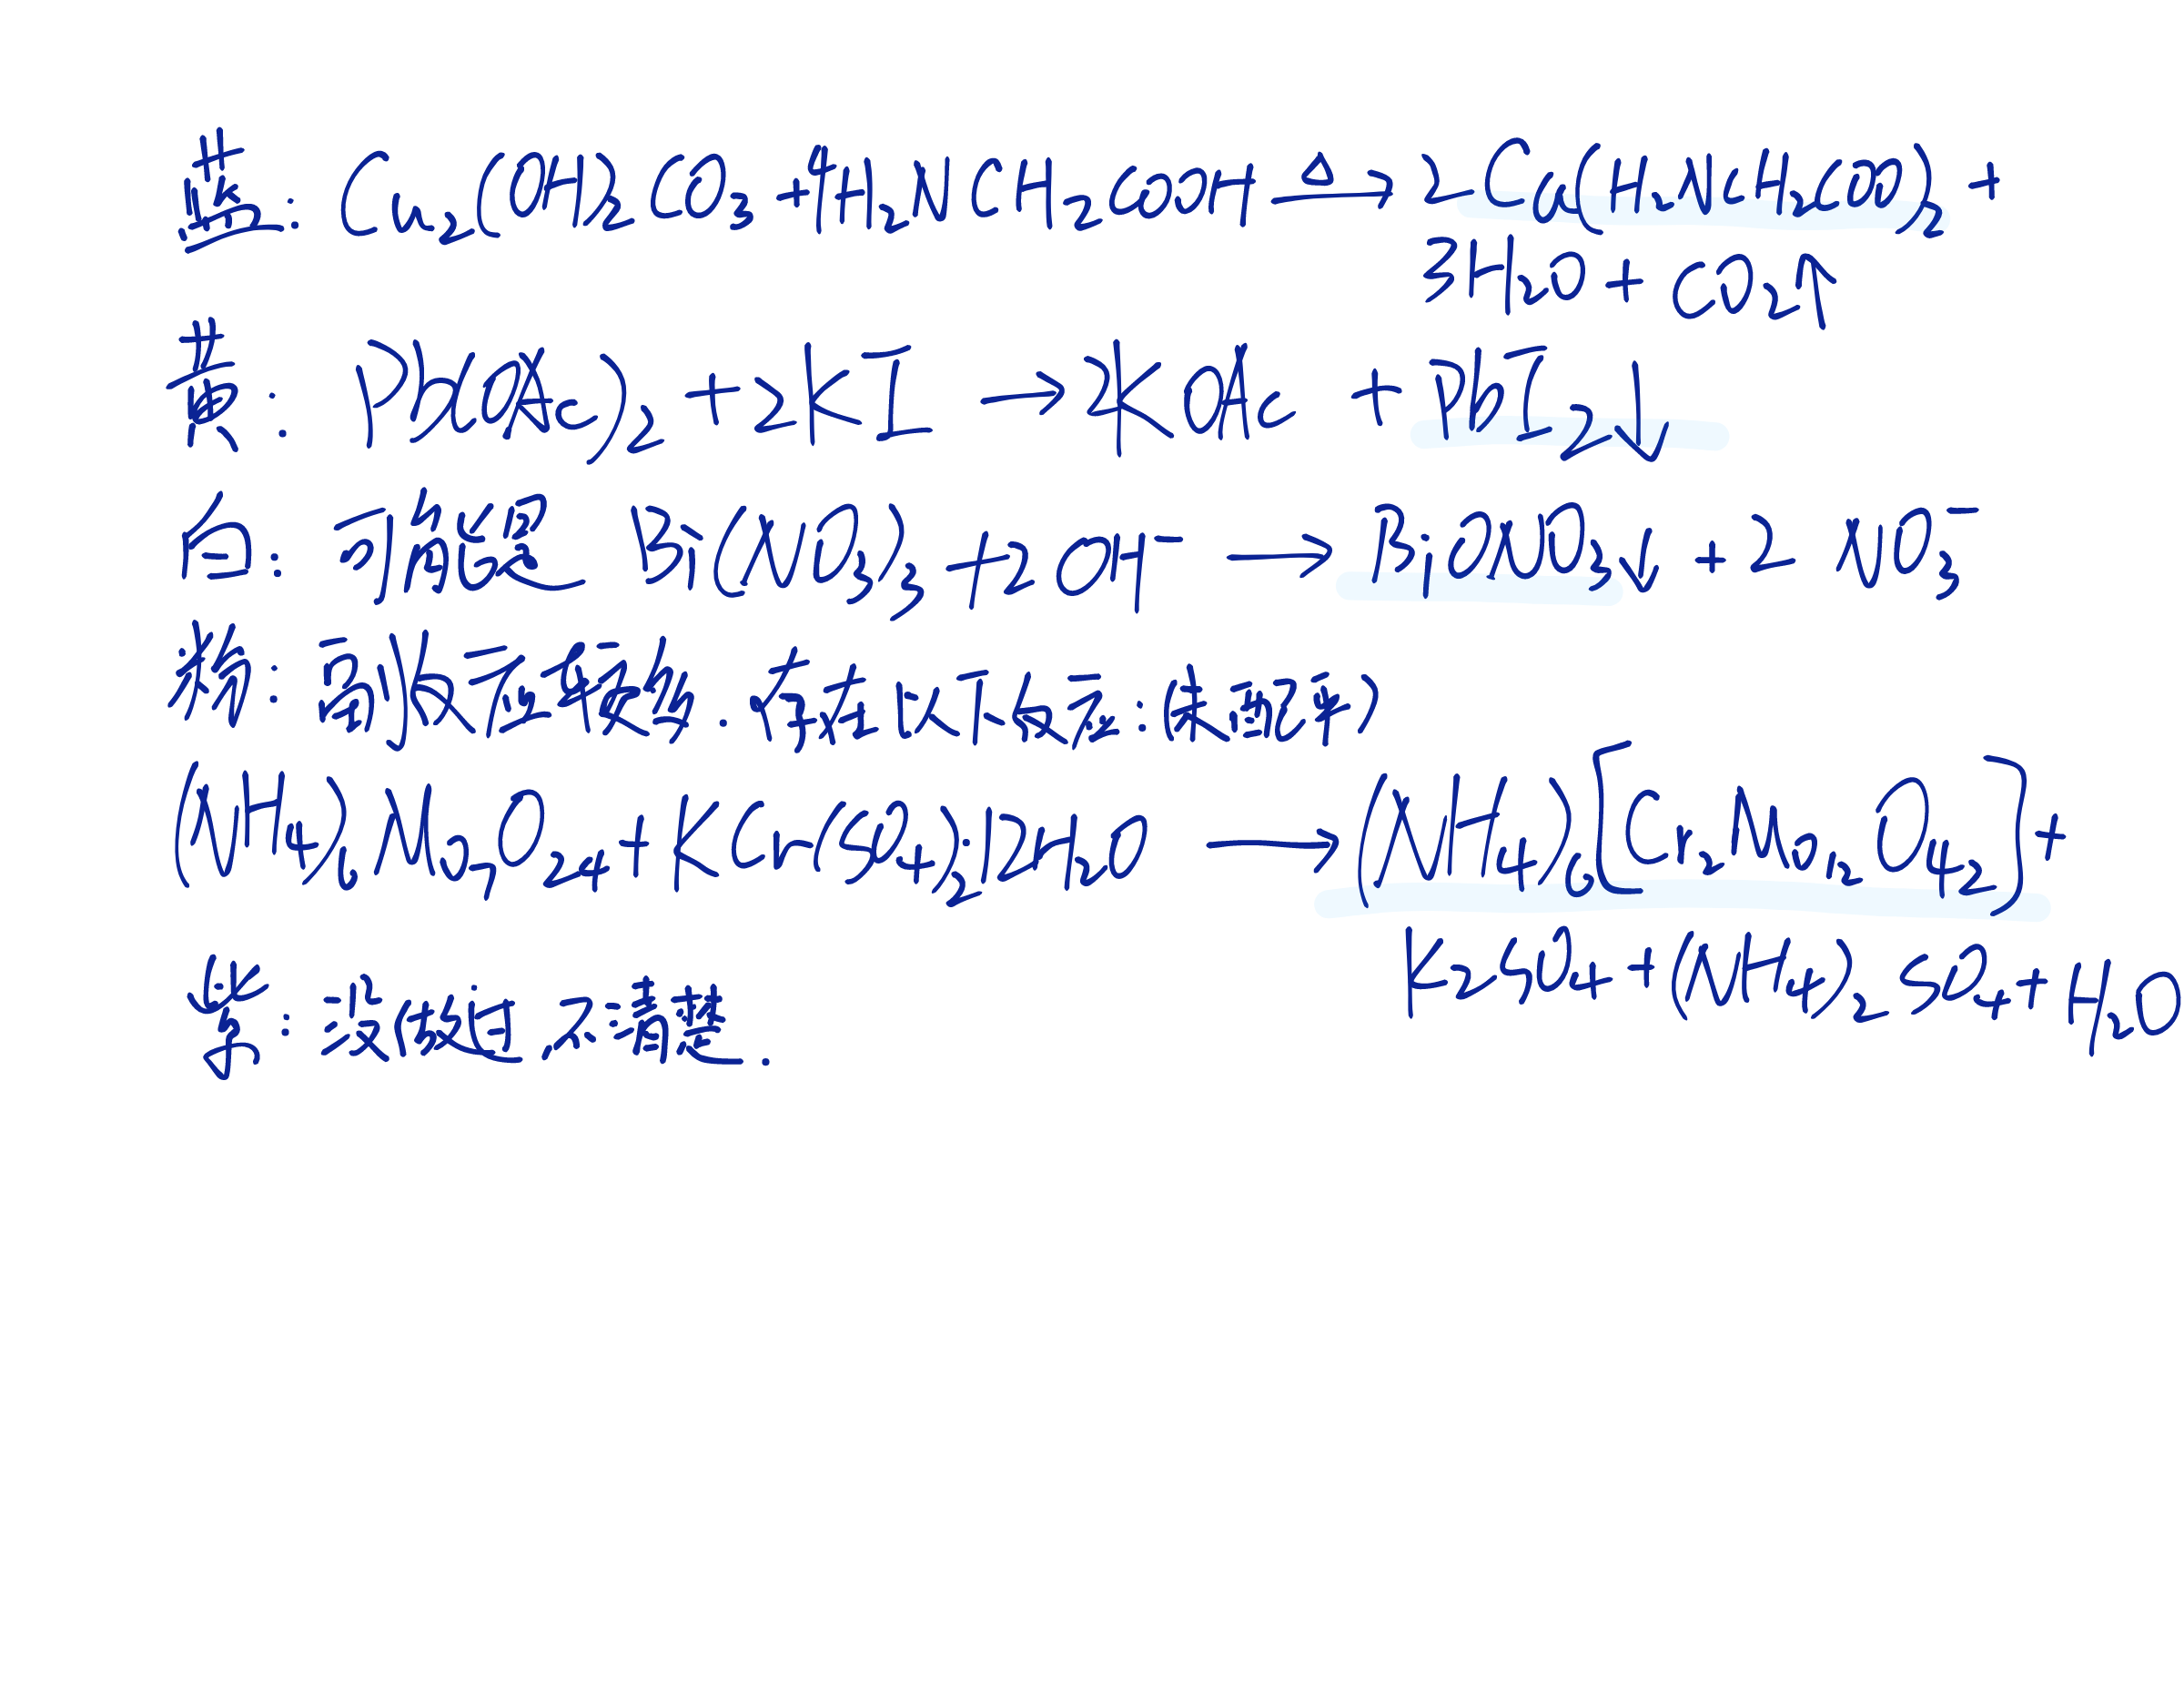 蓝: Cu₂(OH)₂CO₃+4H₂NCH₂COOH—△→2Cu(H₂NCH₂COO)₂+
3H₂O+CO₂↑
黄: Pb(OAc)₂+2KI→2KOAc+PbI₂↓
白: 可能是 Bi(NO₃)₃+2OH⁻→BiONO₃↓+2NO₃⁻
粉: 副反应较多.存在以下反应:(未配平)
(NH₄)₆Mo₇O₂₄+KCr(SO₄)₂·12H₂O→(NH₄)₆[Cr₂Mo₁₂O₄₂]+
K₂SO₄+(NH₄)₂SO₄+H₂O
紫: 没做过不清楚.